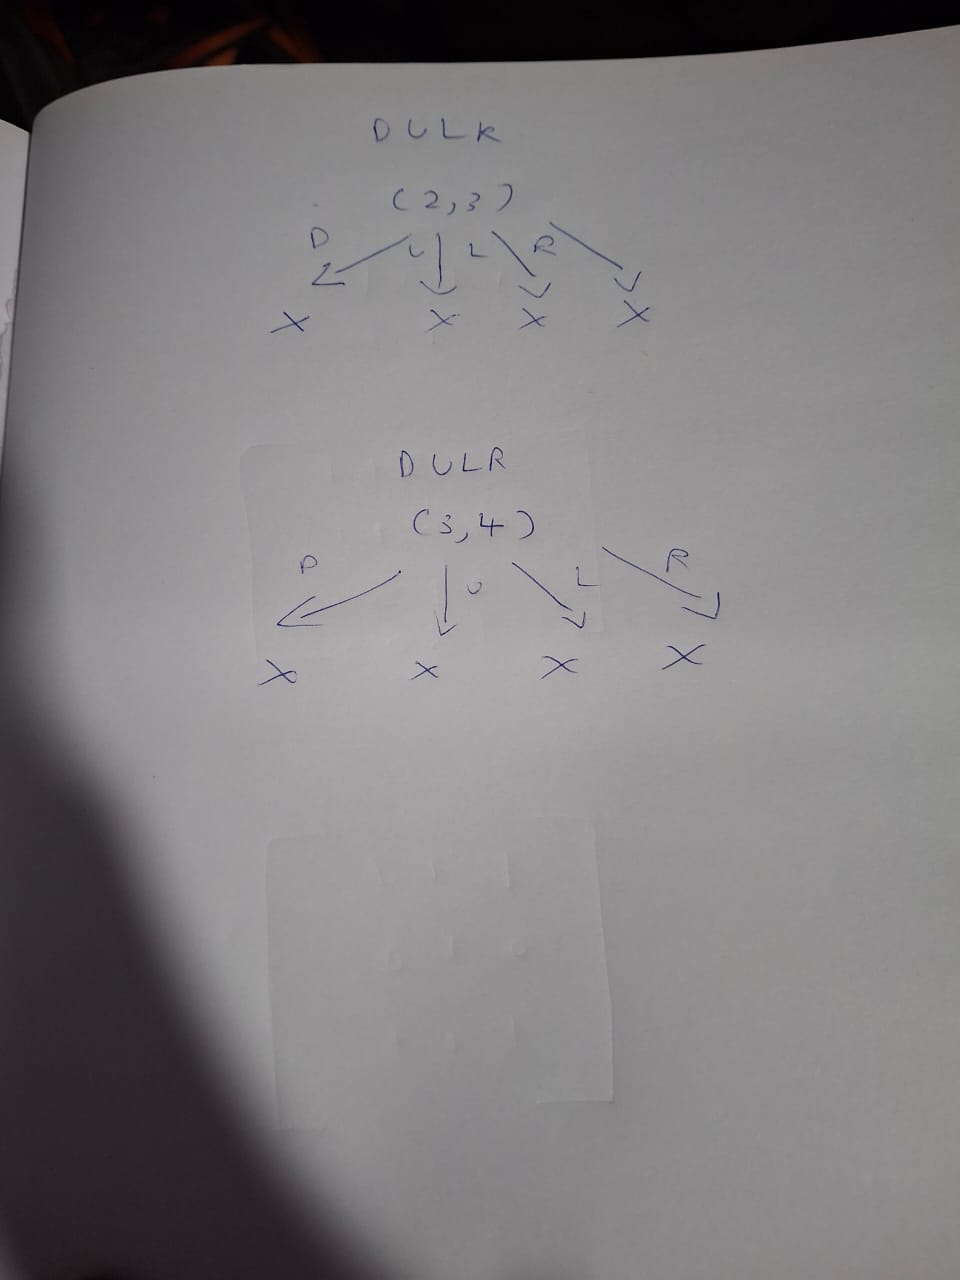 DULR
(2,3)
D U L R
X X X X
DULR
(3,4)
D U L R
X X X X